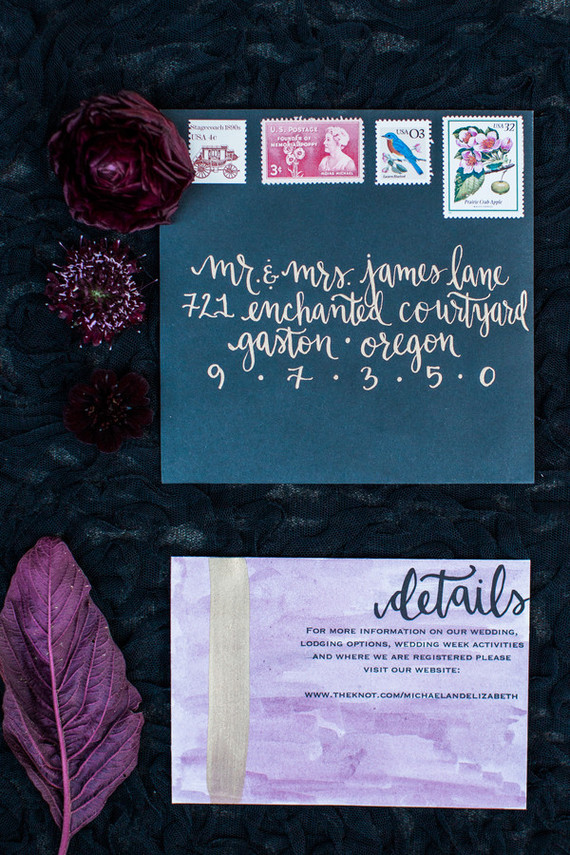 Stagecoach 1890s
USA 4c
U.S. POSTAGE
FOUNDER OF
MEMORIAL POPPY
3¢
MOINA MICHAEL
USA 03
Eastern Bluebird
USA 32
Prairie Crab Apple
mr. & mrs. james lane
721 enchanted courtyard
gaston · oregon
9 · 7 · 3 · 5 · 0
details
FOR MORE INFORMATION ON OUR WEDDING,
LODGING OPTIONS, WEDDING WEEK ACTIVITIES
AND WHERE WE ARE REGISTERED PLEASE
VISIT OUR WEBSITE:
WWW.THEKNOT.COM/MICHAELANDELIZABETH